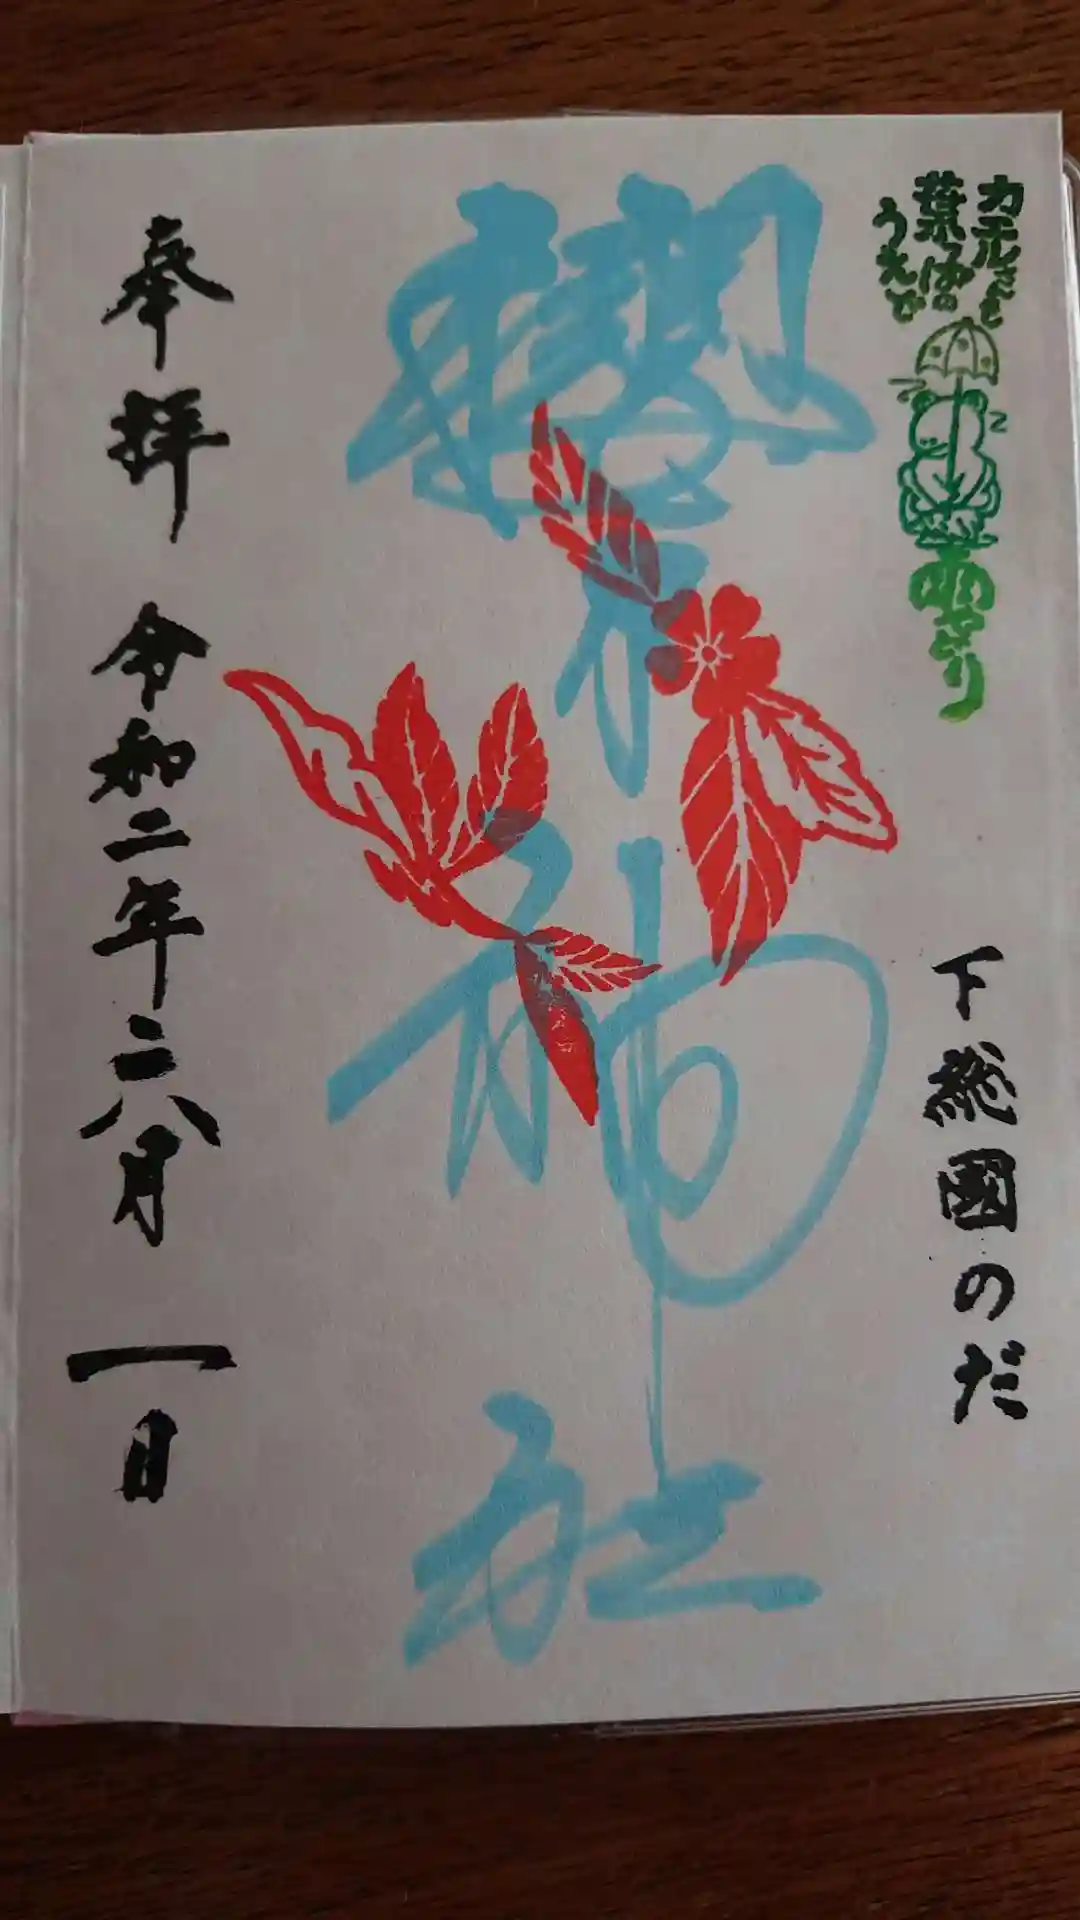 カエルさも
葉っぱの
うえで
雨やどり
下総國のだ
櫻木神社
奉拝 令和二年 六月 一日